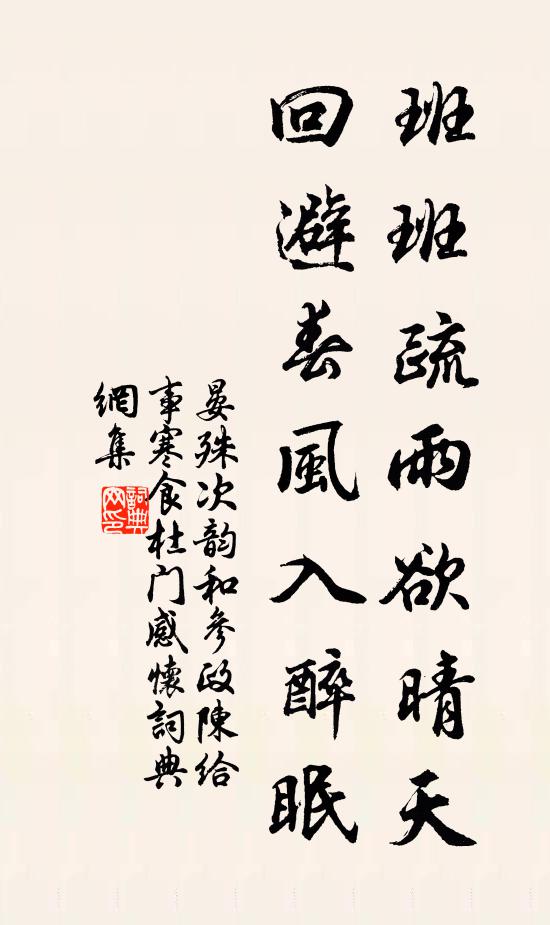 班班疏雨欲晴天
回避春風入醉眠
晏殊次韵和參政陳給
事寒食杜门感懷詞典
網集
詞典
网印